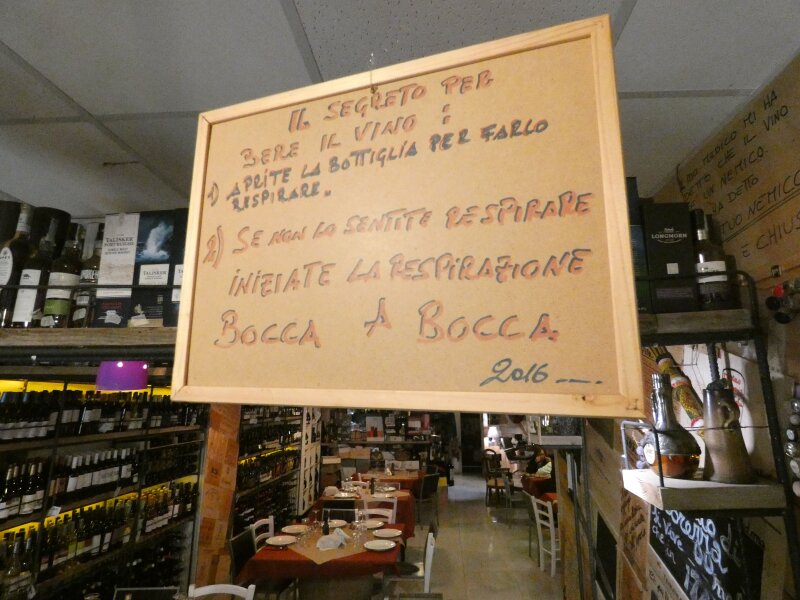 IL SEGRETO PER
BERE IL VINO:
1) APRITE LA BOTTIGLIA PER FARLO
RESPIRARE.
2) SE NON LO SENTITE RESPIRARE
INIZIATE LA RESPIRAZIONE
BOCCA A BOCCA.
2016 ----.
TALISKER
TALISKER
LONGMORN
MEDICO MI HA
CHE IL VINO
UN NEMICO.
HA DETTO
TUO NEMICO
E CHIUS